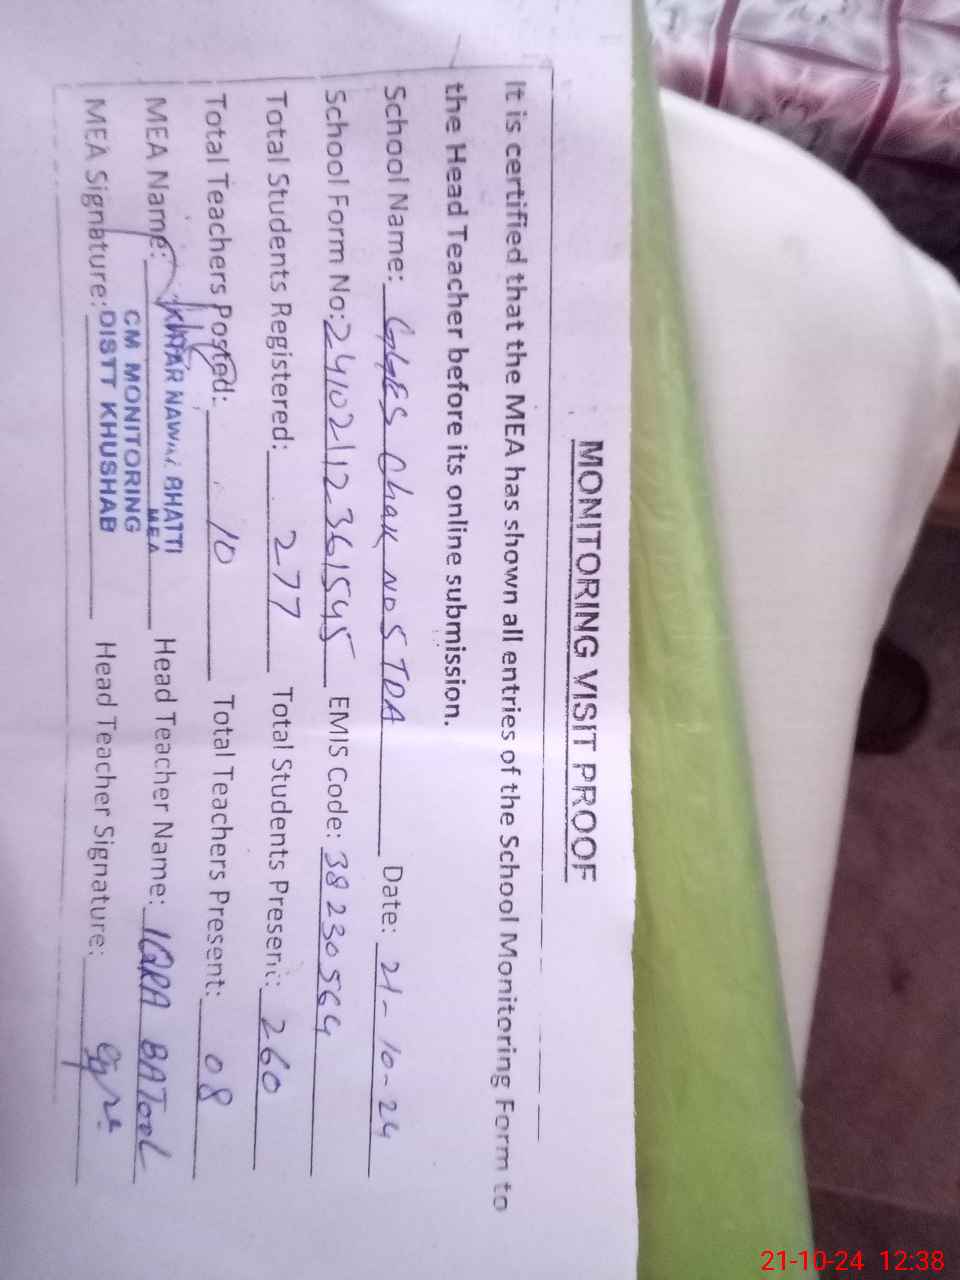 MONITORING VISIT PROOF
It is certified that the MEA has shown all entries of the School Monitoring Form to
the Head Teacher before its online submission.
School Name: GGES Chak No 5 TDA Date: 21-10-24
School Form No: 24102112361545 EMIS Code: 38230564
Total Students Registered: 277 Total Students Present: 260
Total Teachers Posted: 10 Total Teachers Present: 08
MEA Name: BHATTI Head Teacher Name: IQRA BATool
MEA
CM MONITORING
MEA Signature: DISTT KHUSHAB Head Teacher Signature:
21-10-24 12:38